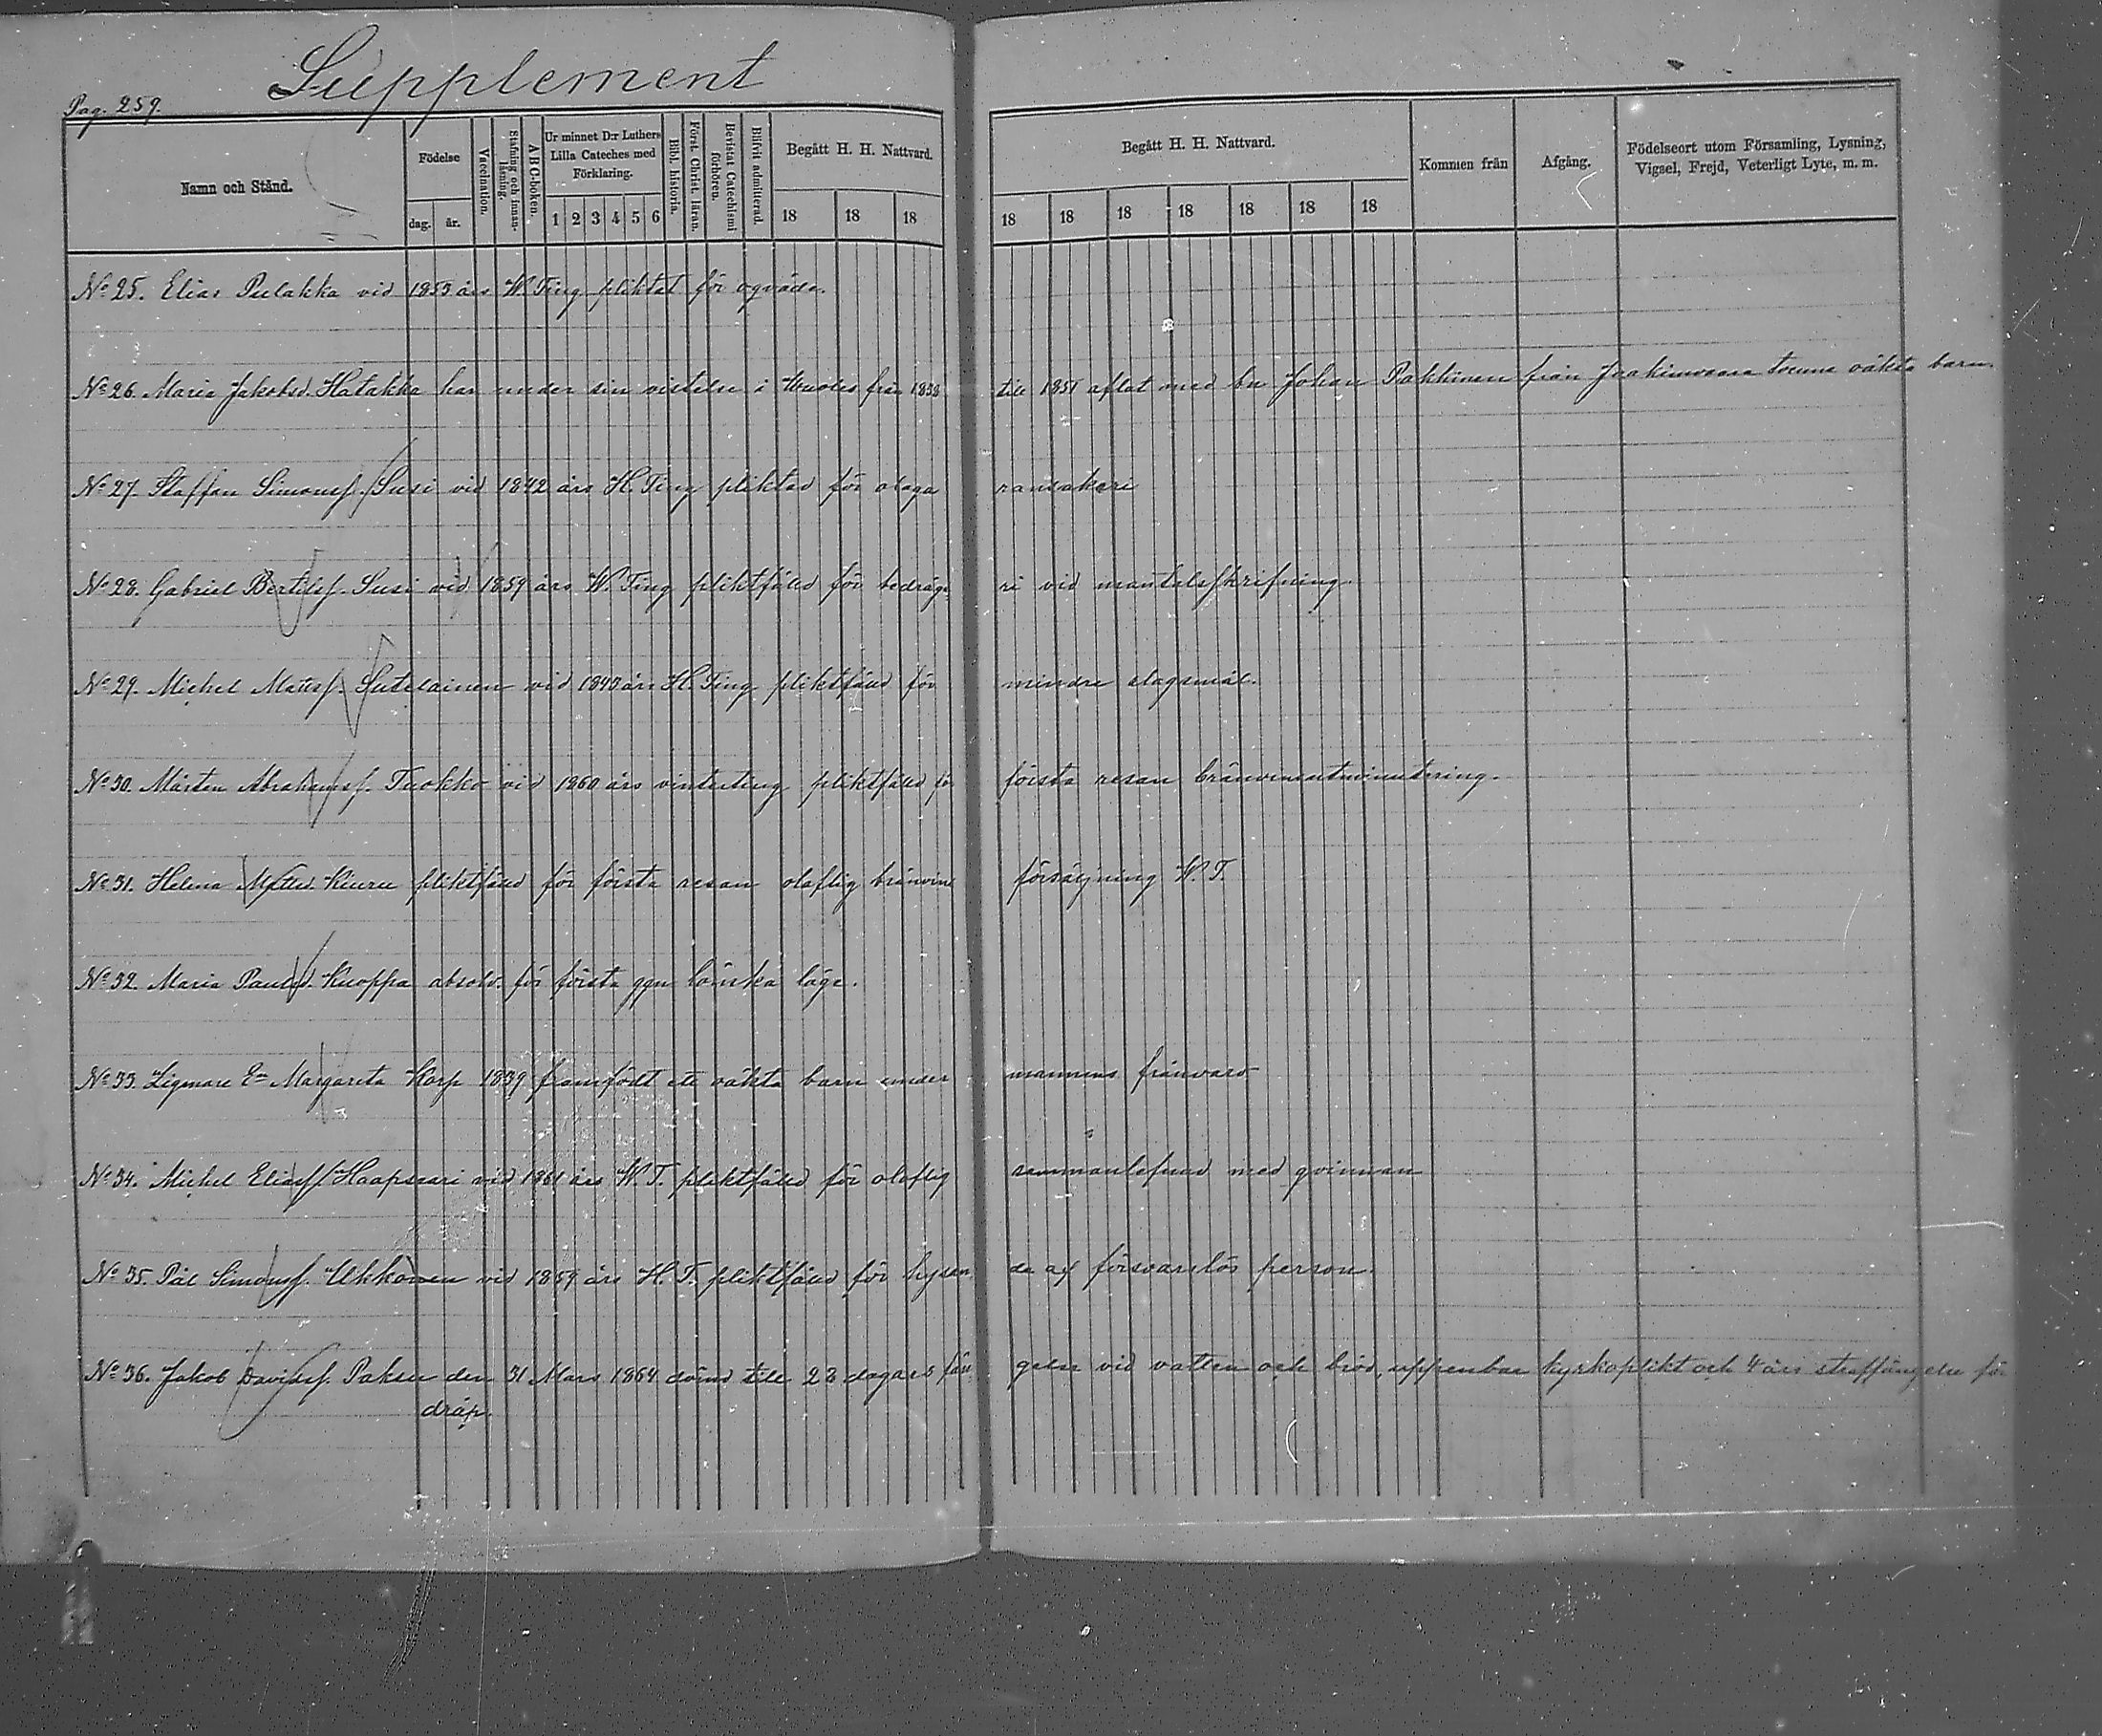 Supplement
Pag. 259.
Namn och Stånd.
Födelse
dag. år.
Vaccination.
Stafning och innanläsning.
A B C-boken.
Ur minnet D:r Luthers Lilla Cateches med Förklaring.
1 2 3 4 5 6
Bibl. historia.
Först. Christ. läran.
Bevistat Catechismi förhören.
Blifvit admitterad.
Begått H. H. Nattvard.
18 18 18
Begått H. H. Nattvard.
18 18 18 18 18 18 18
Kommen från
Afgång.
Födelseort utom Församling, Lysning, Vigsel, Frejd, Veterligt Lyte, m. m.
No 25. Elias Pulakka vid 1853 års W. Ting pliktat för ogväde.
No 26. Maria Jakobsd. Hatakka har under sin vistelse i från 1838 till 1851 aflat med Johan Pakkinen från Joakimvaara oäkta barn.
No 27. Staffan Simonss. Susi vid 1842 års H. Ting pliktad för olaga ransakeri
No 28. Gabriel Bertilss. Susi vid 1859 års W. Ting pliktfäld för bedrägeri vid mantalsskrifning.
No 29. Michel Matss. Sutelainen vid 1848 års H. Ting pliktfäld för mindre slagsmål.
No 30. Mårten Abrahamss. Tuokko vid 1860 års vinterting pliktfäld för första resan bränvinsutminutering.
No 31. Helena Kiuru pliktfäld för första resan olaflig bränvins försäljning W. T.
No 32. Maria Paulsd. Kuoppa absolv. för första ggn lönska läge.
No 33. Margareta Korp 1839 framfödt ett oäkta barn under mannens frånvaro
No 34. Michel Eliass. Haapsaari vid 1861 års W. T. pliktfäld för olaflig sammanlefnad med qvinnan
No 35. Pål Simonss. Ukkonen vid 1859 års H. T. pliktfäld för hysande af försvarslös person.
No 36. Jakob Davidss. Paksu den 31 Mars 1864 dömd till 28 dagars fängelse vid vatten och bröd, uppenbar kyrkoplikt och 4 års straffängelse för
dråp.